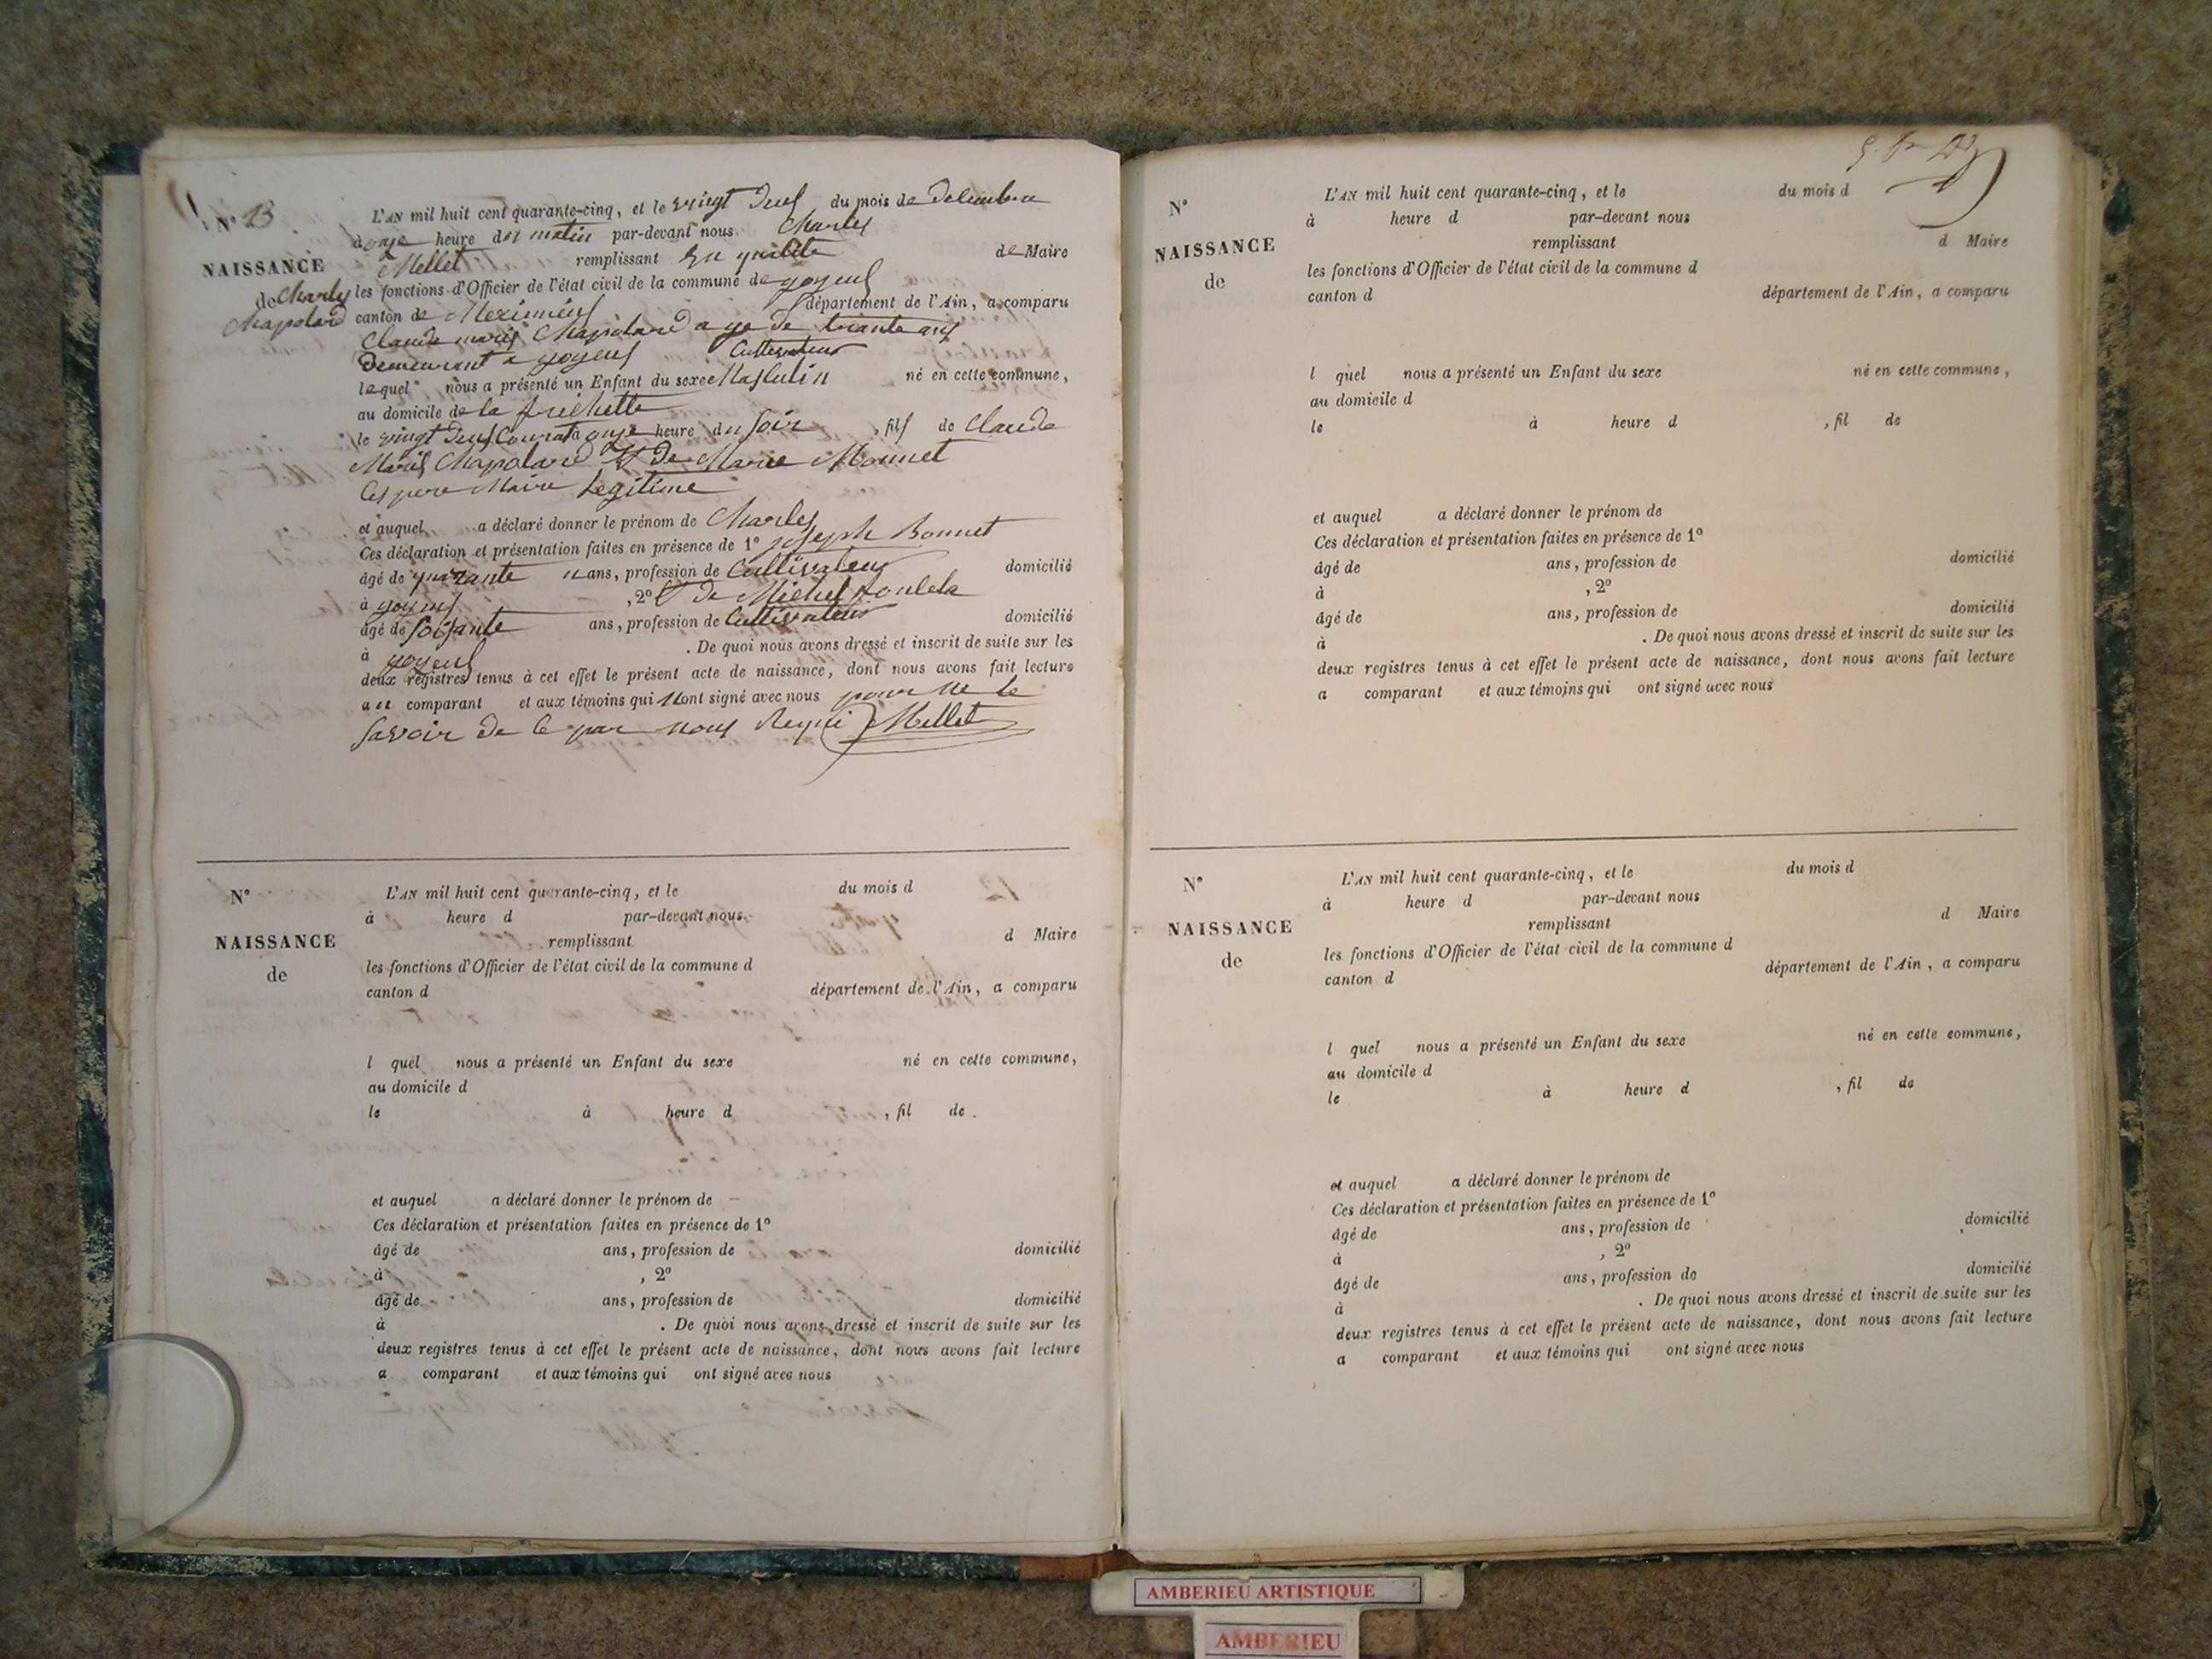 N° 13
NAISSANCE
de Charles
Chapolard
L'AN mil huit cent quarante-cinq, et le vingt Deuf du mois de Decembre
à onze heure du matin par-devant nous Charles
Mellet remplissant En qualité de Maire
les fonctions d'Officier de l'état civil de la commune de joyeus
canton de Meximieus département de l'Ain, a comparu
Claude marie Chapolard a ge de triante ans
Demeurant a joyeus Cultivateur
lequel nous a présenté un Enfant du sexe Masculin né en cette commune,
au domicile de la frichette
le vingt Deus Courat à onze heure du soir , fils de Claude
Marie Chapolard & De Marie Monnet
Ces pere Maire Legitime
et auquel a déclaré donner le prénom de Charles
Ces déclaration et présentation faites en présence de 1° joseph Bonnet
âgé de quarante ans, profession de Cultivateur domicilié
à joyeus , 2° & De Michel
âgé de soisante ans, profession de Cultivateur domicilié
à joyeus . De quoi nous avons dressé et inscrit de suite sur les
deux registres tenus à cet effet le présent acte de naissance, dont nous avons fait lecture
au comparant et aux témoins qui nont signé avec nous pour ne le
savoir De ce par nous Requi Mellet
N°
NAISSANCE
de
L'AN mil huit cent quarante-cinq, et le du mois d
à heure d par-devant nous
remplissant d Maire
les fonctions d'Officier de l'état civil de la commune d
canton d département de l'Ain, a comparu
l quel nous a présenté un Enfant du sexe né en cette commune,
au domicile d
le à heure d , fil de
et auquel a déclaré donner le prénom de
Ces déclaration et présentation faites en présence de 1°
âgé de ans, profession de domicilié
à , 2°
âgé de ans, profession de domicilié
à . De quoi nous avons dressé et inscrit de suite sur les
deux registres tenus à cet effet le présent acte de naissance, dont nous avons fait lecture
a comparant et aux témoins qui ont signé avec nous
N°
NAISSANCE
de
L'AN mil huit cent quarante-cinq, et le du mois d
à heure d par-devant nous
remplissant d Maire
les fonctions d'Officier de l'état civil de la commune d
canton d département de l'Ain, a comparu
l quel nous a présenté un Enfant du sexe né en cette commune,
au domicile d
le à heure d , fil de
et auquel a déclaré donner le prénom de
Ces déclaration et présentation faites en présence de 1°
âgé de ans, profession de domicilié
à , 2°
âgé de ans, profession de domicilié
à . De quoi nous avons dressé et inscrit de suite sur les
deux registres tenus à cet effet le présent acte de naissance, dont nous avons fait lecture
a comparant et aux témoins qui ont signé avec nous
N°
NAISSANCE
de
L'AN mil huit cent quarante-cinq, et le du mois d
à heure d par-devant nous
remplissant d Maire
les fonctions d'Officier de l'état civil de la commune d
canton d département de l'Ain, a comparu
l quel nous a présenté un Enfant du sexe né en cette commune,
au domicile d
le à heure d , fil de
et auquel a déclaré donner le prénom de
Ces déclaration et présentation faites en présence de 1°
âgé de ans, profession de domicilié
à , 2°
âgé de ans, profession de domicilié
à . De quoi nous avons dressé et inscrit de suite sur les
deux registres tenus à cet effet le présent acte de naissance, dont nous avons fait lecture
a comparant et aux témoins qui ont signé avec nous
AMBERIEU ARTISTIQUE
AMBERIEU